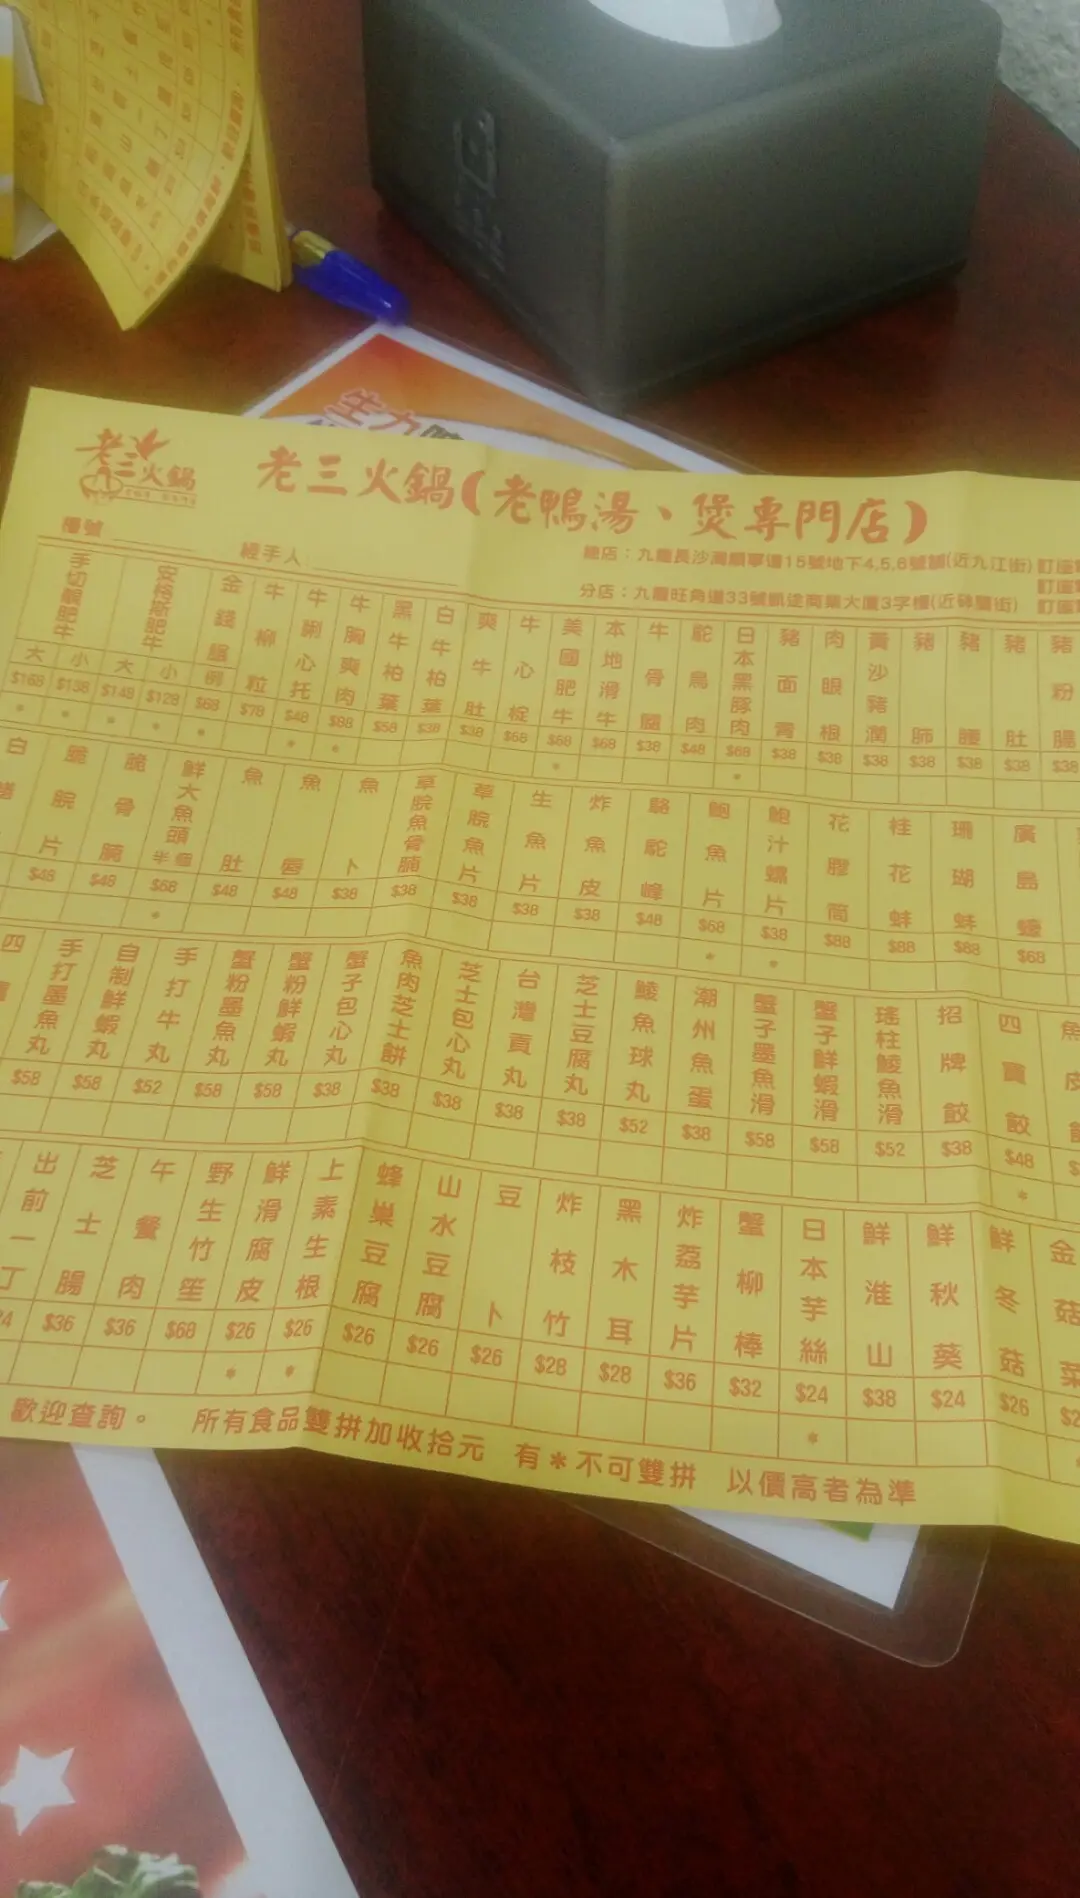 老三火鍋
老三火鍋(老鴨湯、煲專門店)
檯號 經手人
總店:九龍長沙灣順寧道15號地下4,5,6號舖(近九江街)
分店:九龍旺角道33號凱途商業大廈3字樓(近砵蘭街)
手切靚肥牛 安格斯肥牛 金錢𦟌 牛柳粒 牛脷心托 牛胸爽肉 黑牛柏葉 白牛柏葉 爽牛肚 牛心椗 美國肥牛 本地滑牛 牛骨髓 鴕鳥肉 日本黑豚肉 豬面青 肉眼根 黃沙豬潤 豬肺 豬腰 豬肚 豬粉腸
大 小 大 小 例
$168 $138 $148 $128 $68 $78 $48 $88 $58 $38 $38 $68 $68 $68 $38 $48 $68 $38 $38 $38 $38 $38 $38 $38
* * * * * * * * *
脆脘片 脆骨腩 鮮大魚頭半個 魚肚 魚唇 魚卜 草脘魚骨腩 草脘魚片 生魚片 炸魚皮 駱駝峰 鮑魚片 鮑汁螺片 花膠筒 桂花蚌 珊瑚蚌 廣島蠔
$48 $48 $68 $48 $48 $38 $38 $38 $38 $38 $48 $68 $38 $88 $88 $88 $68
* * *
手打墨魚丸 自制鮮蝦丸 手打牛丸 蟹粉墨魚丸 蟹粉鮮蝦丸 蟹子包心丸 魚肉芝士餅 芝士包心丸 台灣貢丸 芝士豆腐丸 鯪魚球丸 潮州魚蛋 蟹子墨魚滑 蟹子鮮蝦滑 瑤柱鯪魚滑 招牌餃 四寶餃
$58 $58 $52 $58 $58 $38 $38 $38 $38 $38 $52 $38 $58 $58 $52 $38 $48
*
出前一丁 芝士腸 午餐肉 野生竹笙 鮮滑腐皮 上素生根 蜂巢豆腐 山水豆腐 豆卜 炸枝竹 黑木耳 炸荔芋片 蟹柳棒 日本芋絲 鮮淮山 鮮秋葵 鮮冬菇 金菇菜
$36 $36 $68 $26 $26 $26 $26 $26 $28 $28 $36 $32 $24 $38 $24 $26
* * *
歡迎查詢。 所有食品雙拼加收拾元 有*不可雙拼 以價高者為準